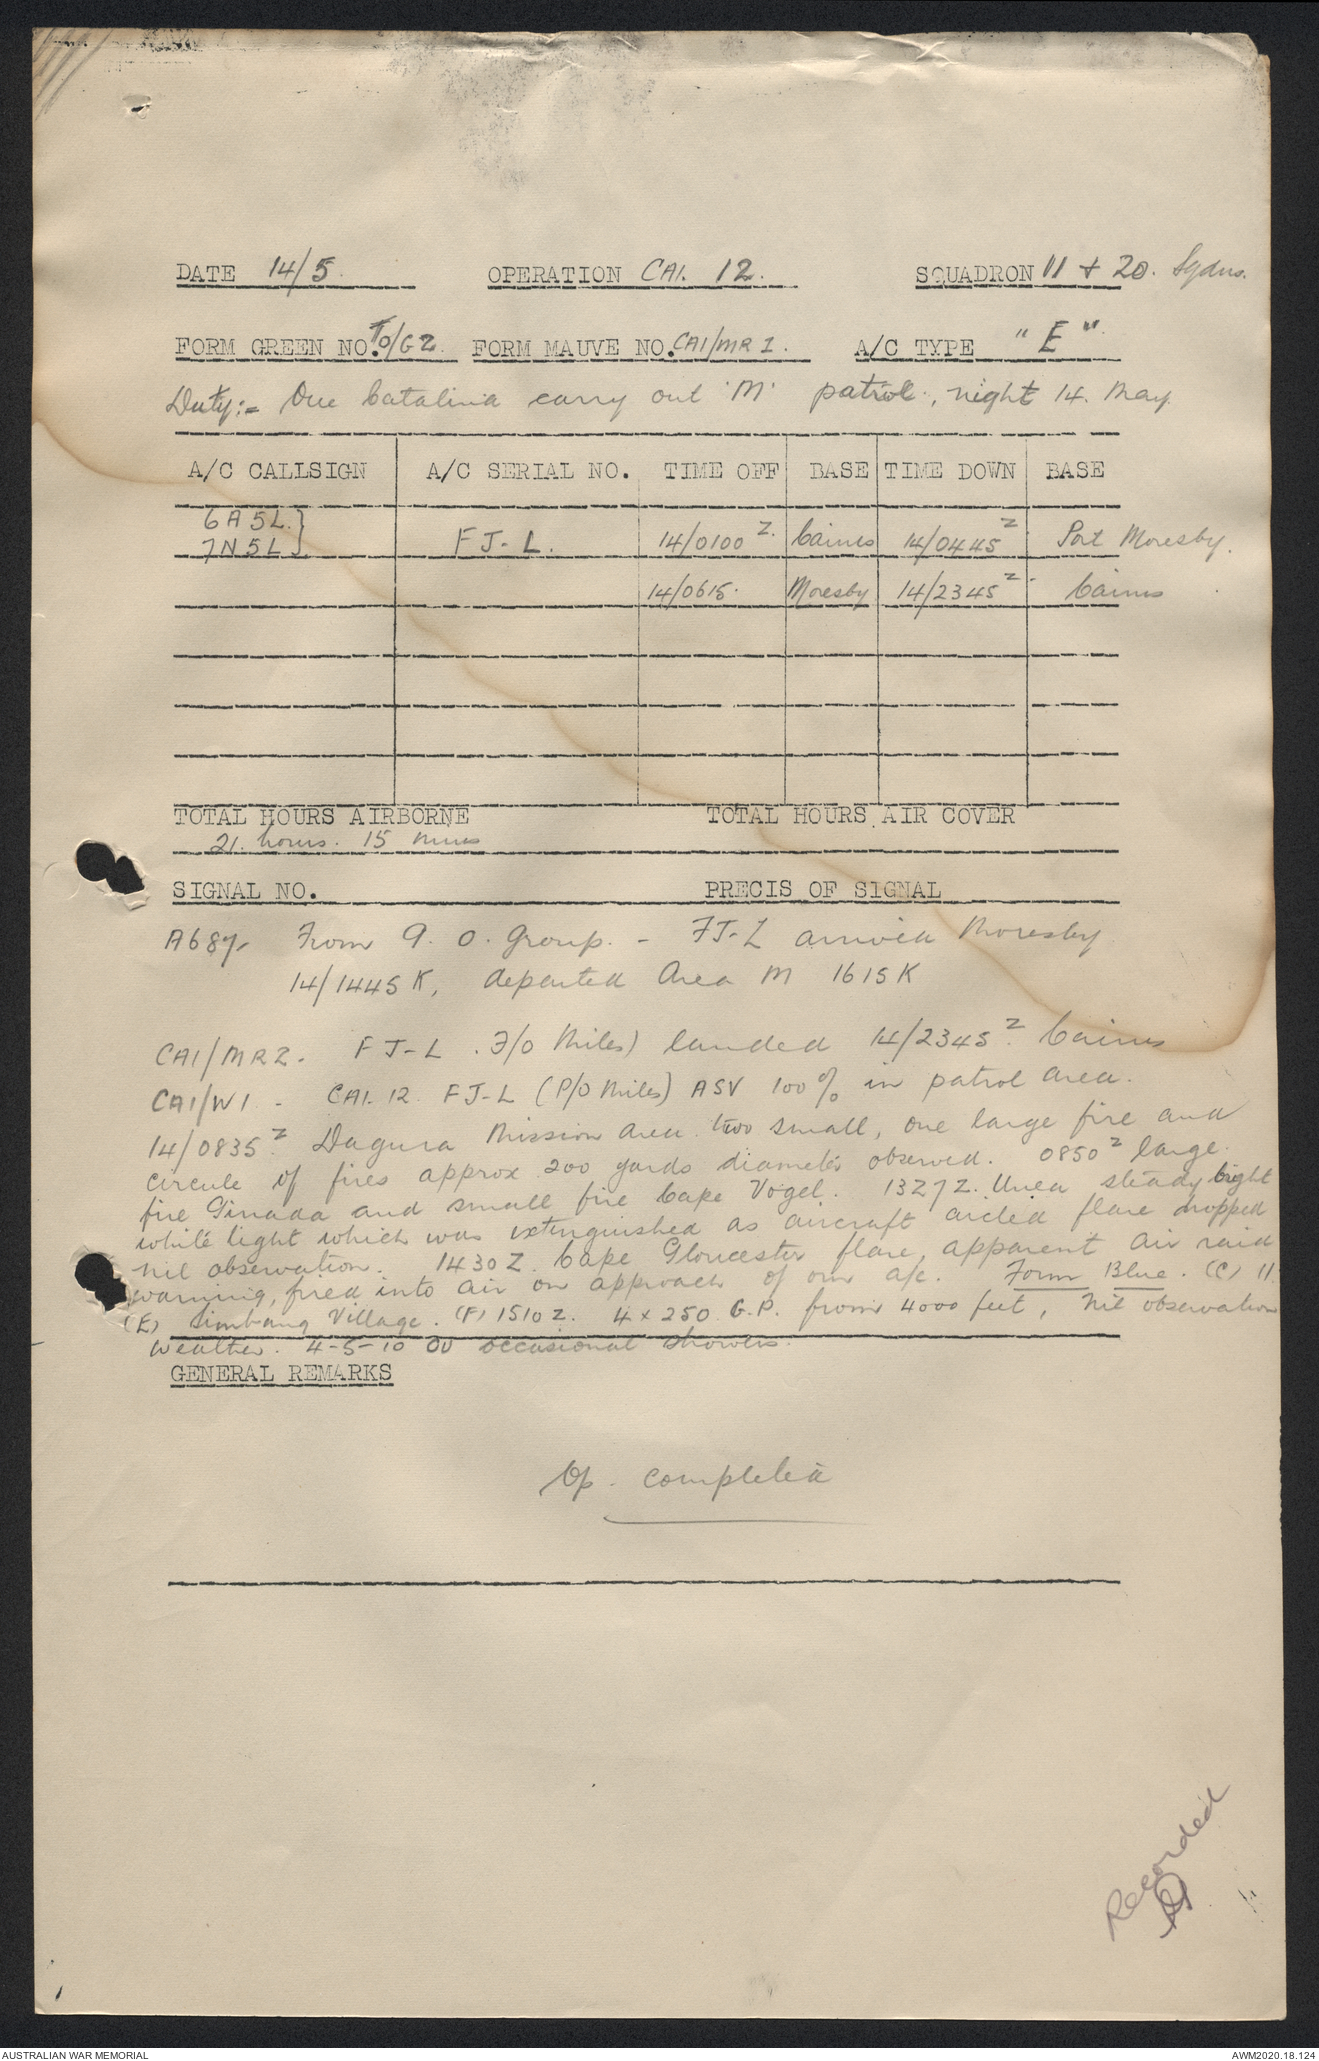 DATE 14/5. OPERATION CAI. 12. SQUADRON 11 + 20. Sqdns.
FORM GREEN NO. TO/G2 FORM MAUVE NO. CAI/MR 1. A/C TYPE "E"
Duty:- One Catalina carry out 'M' patrol, night 14. May.
A/C CALLSIGN A/C SERIAL NO. TIME OFF BASE TIME DOWN BASE
6A5L }
7N5L } FJ-L. 14/0100 Z. Cairns 14/0445 Z Port Moresby.
14/0615. Moresby 14/2345 Z. Cairns
TOTAL HOURS AIRBORNE TOTAL HOURS AIR COVER
21. hours. 15 mins
SIGNAL NO. PRECIS OF SIGNAL
A687. From 9. O. Group. - FJ-L arrived Moresby
14/1445K, departed Area M 1615K
CAI/MR2. FJ-L. F/O Miles) landed 14/2345 Z. Cairns
CAI/W1 - CAI. 12. FJ-L (P/O Miles) ASV 100% in patrol area.
14/0835 Z. Dagura Mission area. two small, one large fire and
circule of fires approx 200 yards diameter observed. 0850 Z large
fire Giruada and small fire Cape Vogel. 1327Z. Unea steady bright
white light which was extinguished as aircraft circled flare dropped
nil observation. 1430Z. Cape Gloucester flare, apparent air raid
warning, fired into air on approach of our a/c. Form Blue. (C) 11.
(E) Simbang Village. (F) 1510Z. 4 x 250 G.P. from 4000 feet, nil observation
Weather. 4-5-10 00 occasional showers.
GENERAL REMARKS
Op. completed
Recorded
AUSTRALIAN WAR MEMORIAL AWM2020.18.124